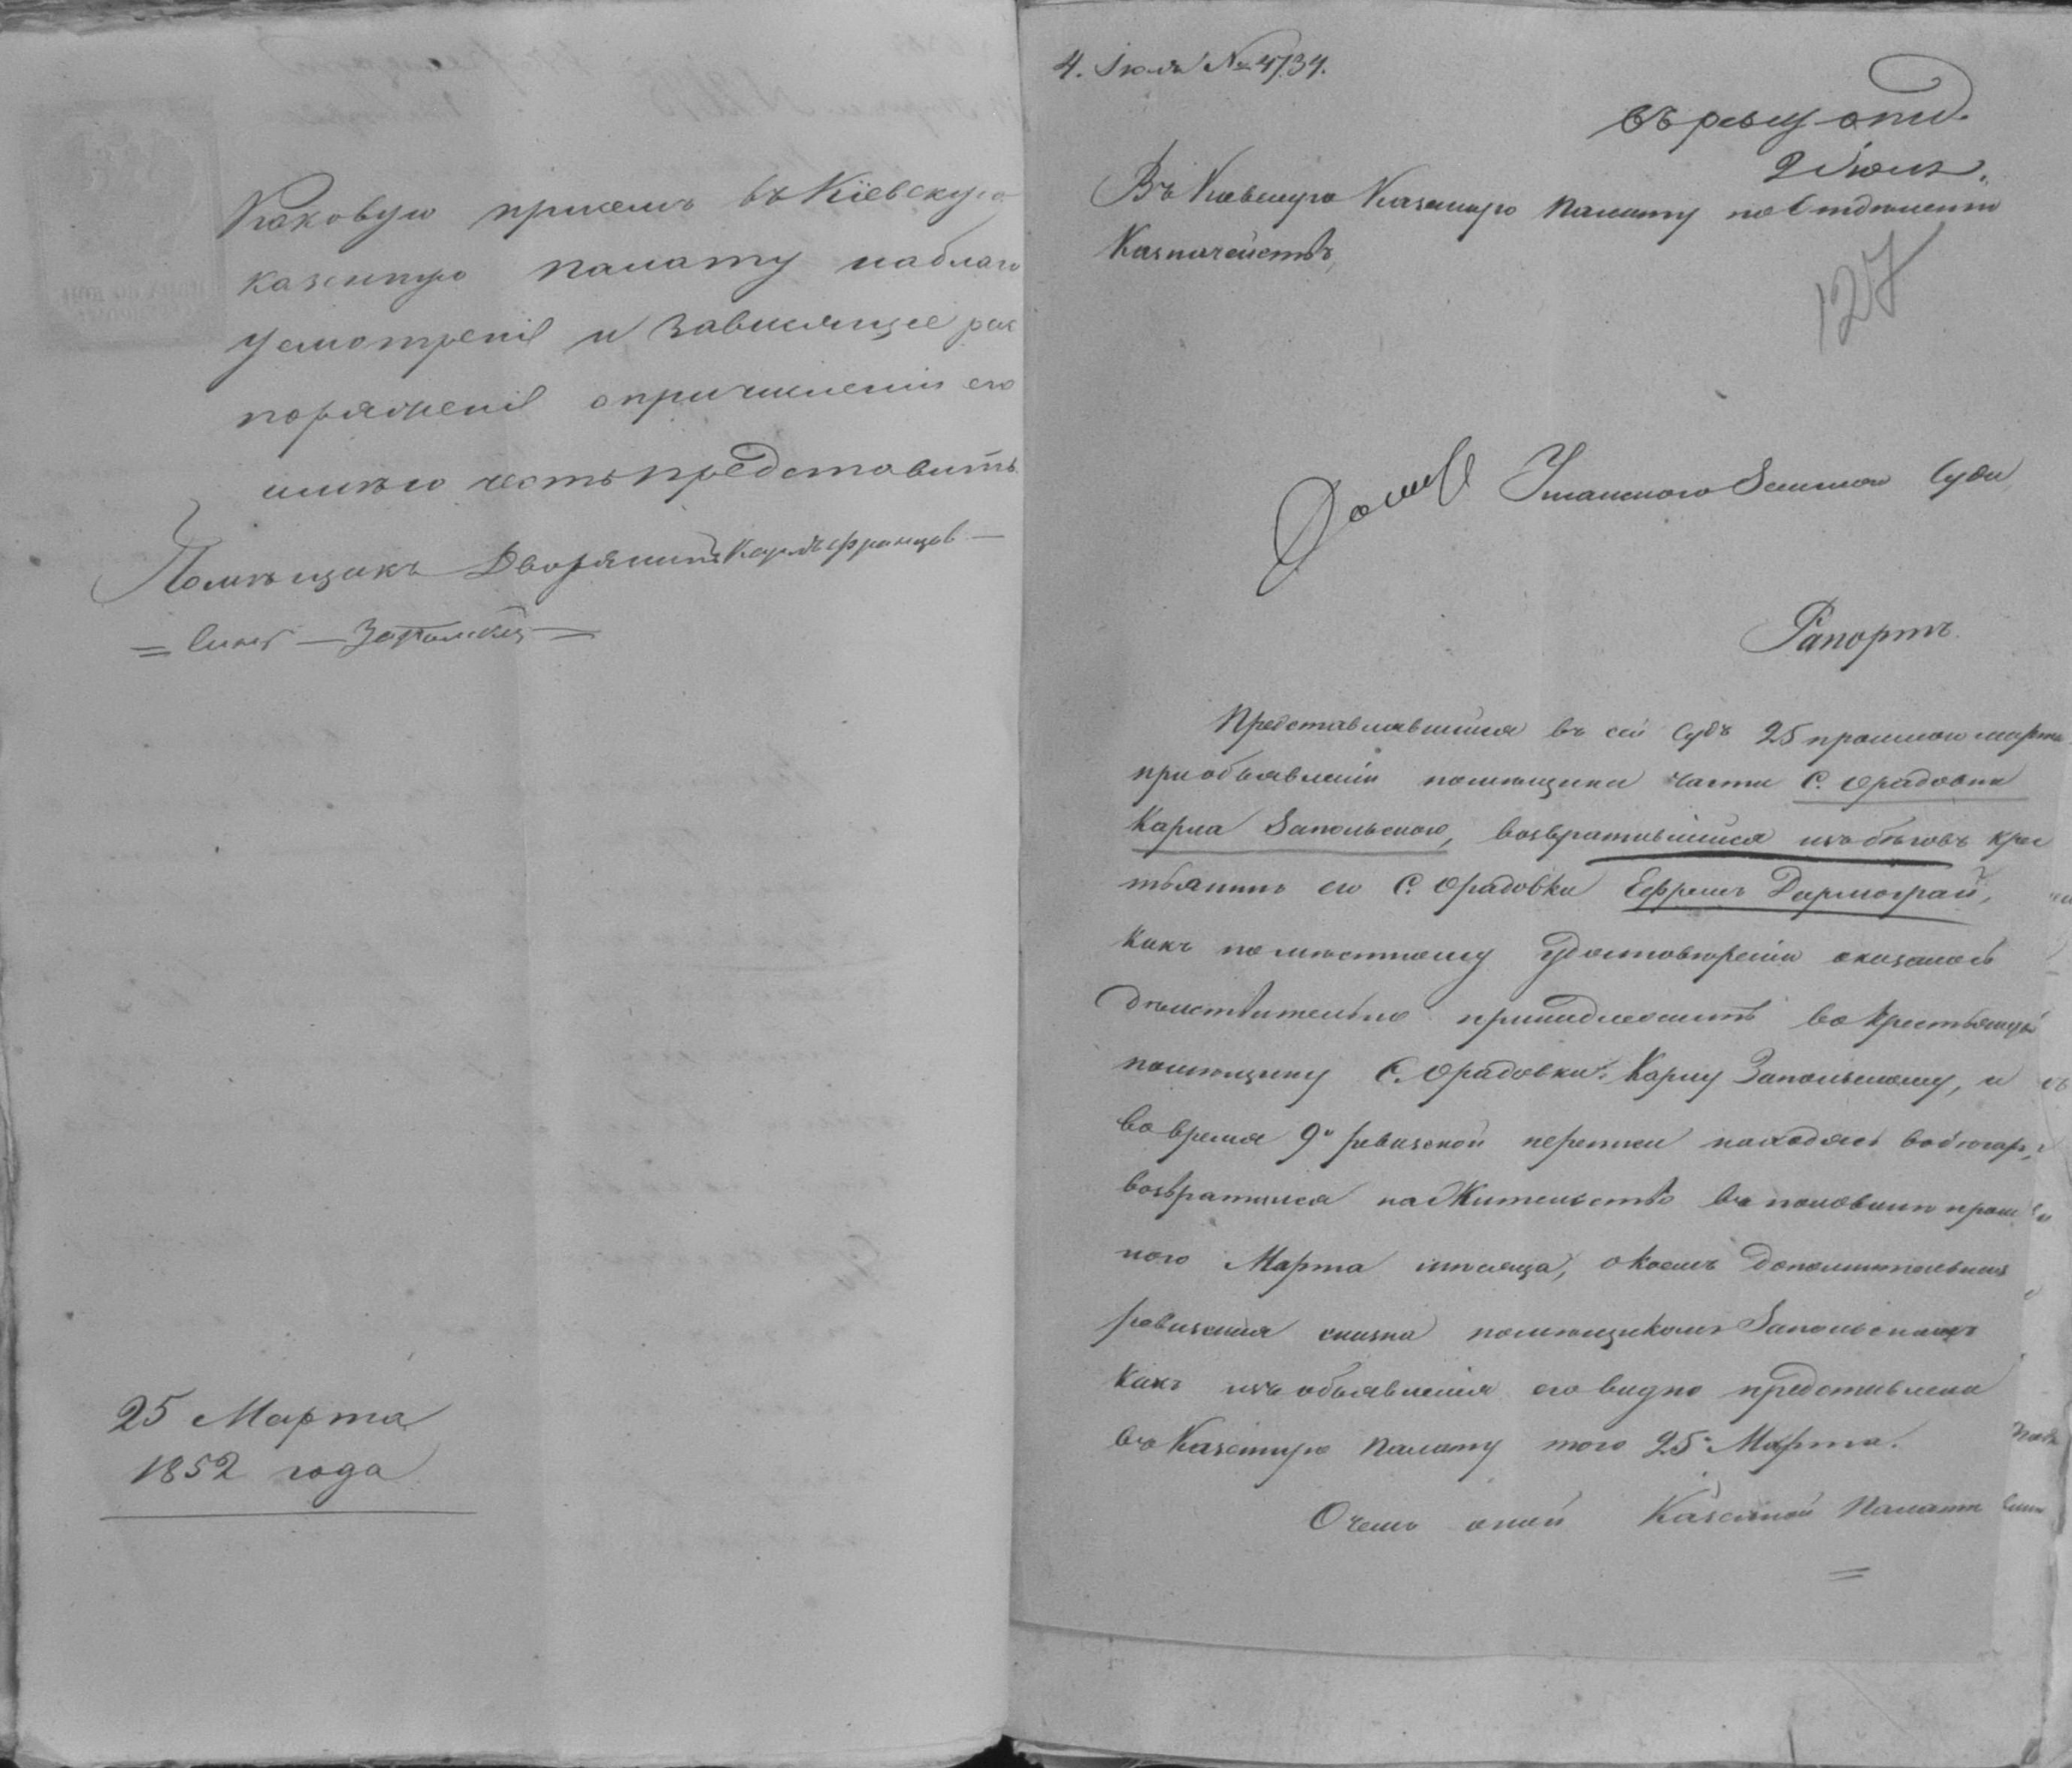 Каковую при семъ въ Кіевскую
казенную палату на благо
усмотреніе и зависящее рас
поряженіе о причисленіи его
имѣю честь представить
Помѣщикъ Дворянинъ Карлъ Францов
= Сынъ — Запольскій =
25 Марта
1852 года
4. Іюля № 4734.
въ ревиз отд.
2 Іюля.
Въ Кіевскую Казенную Палату по Отдѣленію
Казначействъ
127
Уманского Земского Суда
Рапортъ
Представлявшійся въ сей Судъ 25 прошлого марта
при объявленіи помѣщика части С. Орадовки
Карла Запольского, возвратившійся изъ бѣговъ крес
тьянинъ его С. Орадовки Ефремъ Дармограй,
какъ по мѣстному удостовѣренію оказалось
дѣйствительно принадлежитъ въ крестьянство
помѣщику С. Орадовки Карлу Запольскому, и
во время 9й ревизской переписи находясь въ бѣгахъ,
возвратился на Жительство въ половинѣ прош
лого Марта мѣсяца, о коемъ дополнительная
ревизская сказка помѣщикомъ Запольскимъ
какъ изъ объявленія его видно представлена
въ Казенную Палату того 25 Марта.
О чемъ оной Казенной Палатѣ